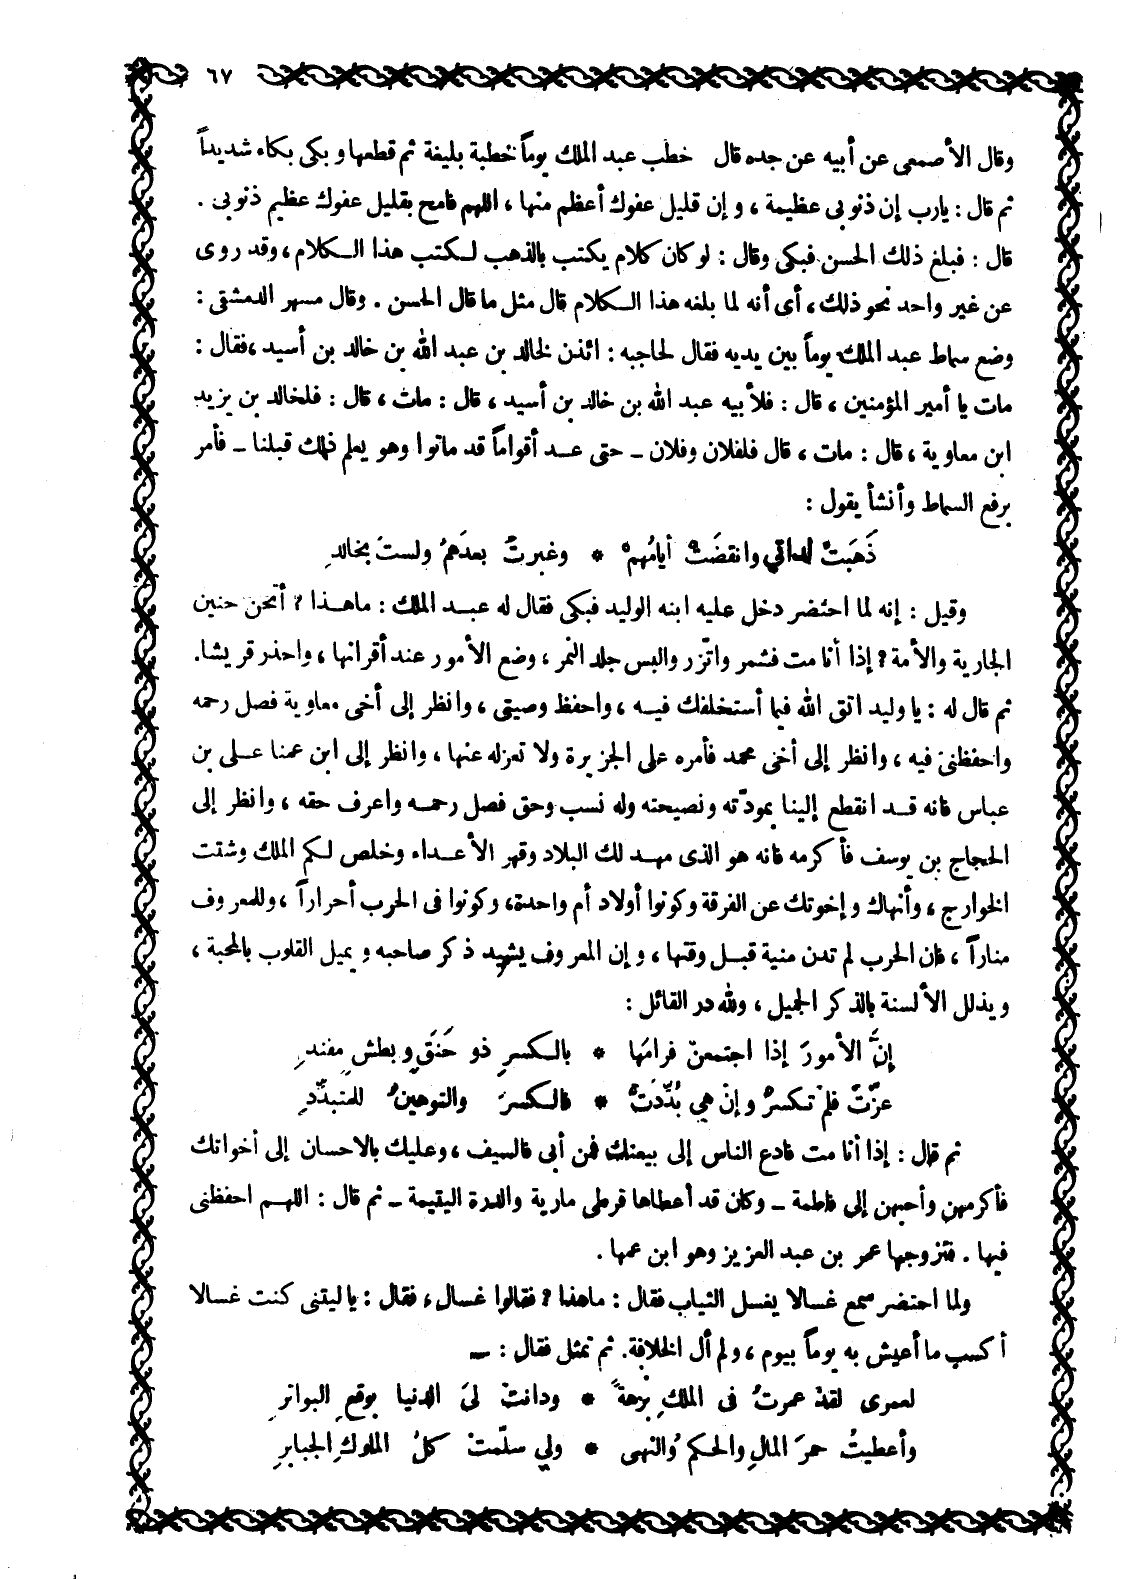 ٦٧
وقال الأصمعى عن أبيه عن جده قال خطب عبد الملك يوماً خطبة بليغة ثم قطعها وبكى بكاء شديداً
ثم قال : يارب إن ذنوبى عظيمة ، وإن قليل عفوك أعظم منها ، اللهم فامح بقليل عفوك عظيم ذنوبى .
قال : فبلغ ذلك الحسن فبكى وقال : لو كان كلام يكتب بالذهب لكتب هذا الكلام ، وقد روى
عن غير واحد نحو ذلك ، أى أنه لما بلغه هذا الكلام قال مثل ما قال الحسن . وقال مسهر الدمشقى :
وضع سماط عبد الملك يوماً بين يديه فقال لحاجبه : ائذن لخالد بن عبد الله بن خالد بن أسيد ، فقال :
مات يا أمير المؤمنين ، قال : فلأبيه عبد الله بن خالد بن أسيد ، قال : مات ، قال : فلخالد بن يزيد
ابن معاوية ، قال : مات ، قال فلفلان وفلان – حتى عد أقواماً قد ماتوا وهو يعلم ذلك قبلنا – فأمر
برفع السماط وأنشأ يقول :
ذَهَبَتْ لداتي وانقضَتْ أيامُهمْ * وغبرتُ بعدَهمُ ولستَ بخالدِ
وقيل : إنه لما احتضر دخل عليه ابنه الوليد فبكى فقال له عبد الملك : ماهذا ؟ أتحن حنين
الجارية والأمة ؟ إذا أنا مت فشمر واتّزر والبس جلد النمر ، وضع الأمور عند أقرانها ، واحذر قريشا .
ثم قال له : يا وليد اتق الله فيما أستخلفك فيه ، واحفظ وصيتى ، وانظر إلى أخى معاوية فصل رحمه
واحفظنى فيه ، وانظر إلى أخى محمد فأمره على الجزيرة ولا تعزله عنها ، وانظر إلى ابن عمنا على بن
عباس فانه قد انقطع إلينا بمودّته ونصيحته وله نسب وحق فصل رحمه واعرف حقه ، وانظر إلى
الحجاج بن يوسف فأكرمه فانه هو الذى مهد لك البلاد وقهر الأعداء وخلص لكم الملك وشتت
الخوارج ، وأنهاك وإخوتك عن الفرقة وكونوا أولاد أم واحدة ، وكونوا فى الحرب أحراراً ، وللمعروف
مناراً ، فان الحرب لم تدن منية قبل وقتها ، وإن المعروف يشيد ذكر صاحبه ويميل القلوب بالمحبة ،
ويذلل الألسنة بالذكر الجميل ، ولله در القائل :
إنَّ الأمورَ إذا اجتمعنَ فرامَها * بالكسرِ ذو حَنَقٍ وبطشٍ مفندِ
عزّتْ فلمْ تكسرْ وإنْ هي بُدّدَتْ * فالكسرَ والتوهينُ للمتبدّدِ
ثم قال : إذا أنا مت فادع الناس إلى بيعتك فمن أبى فالسيف ، وعليك بالاحسان إلى أخواتك
فأكرمهن وأحبهن إلى فاطمة – وكان قد أعطاها قرطى مارية والدرة اليتيمة – ثم قال : اللهم احفظنى
فيها . فتزوجها عمر بن عبد العزيز وهو ابن عمها .
ولما احتضر سمع غسالا يغسل الثياب فقال : ماهذا ؟ فقالوا غسال ، فقال : يا ليتنى كنت غسالا
أكسب ما أعيش به يوماً بيوم ، ولم أل الخلافة . ثم تمثل فقال : –
لعمرى لقدْ عمرتُ فى الملكِ برْهةً * ودانتْ لىَ الدنيا بوقعِ البواترِ
وأعطيتُ حمرَ المالِ والحكمَ والنهى * ولي سلّمتْ كلُ الملوكِ الجبابرِ